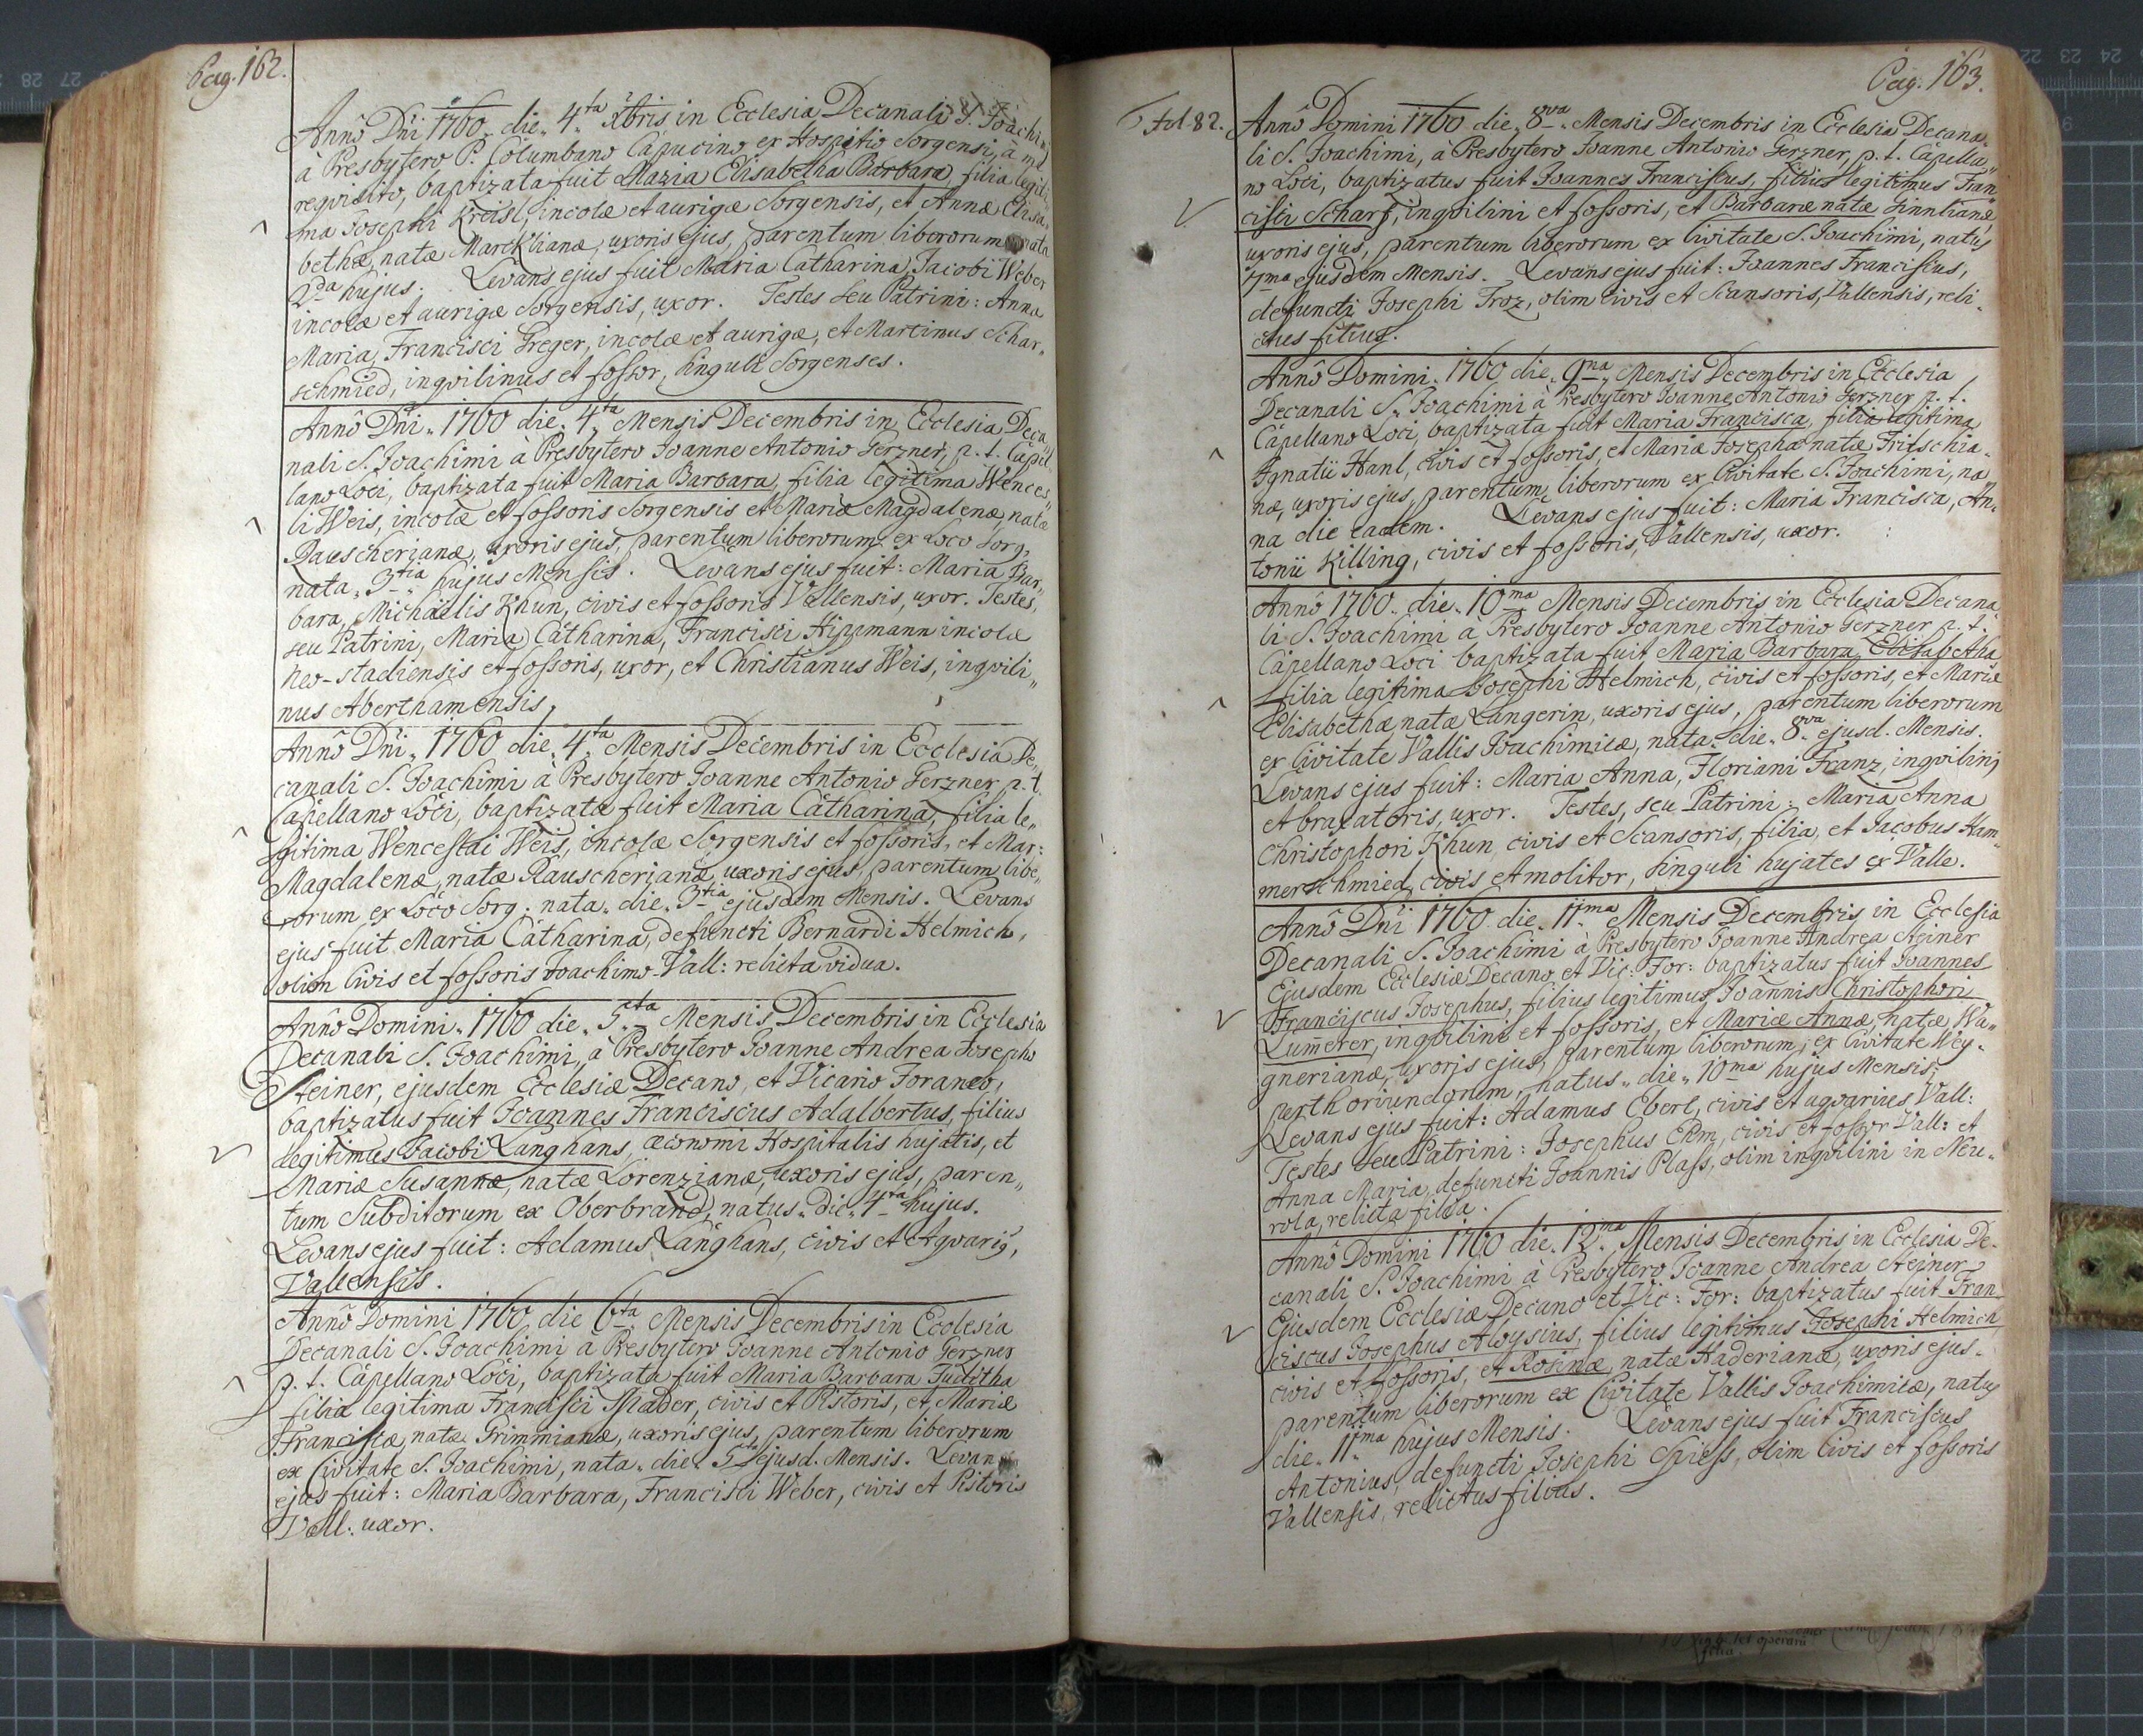 Pag. 162.
Annô Dn̄i 1760 die 4ta Xbris in Ecclesia Decanali S. Joachimi
à Presbytero P. Columbano Capucino ex Hospitio Sorgensi, à me
requisito, baptizata fuit Maria Elisabetha Barbara, filia legiti„
ma Josephi Kreisl, incolæ et aurigæ Sorgensis, et Annæ Elisa„
bethæ, natæ Marcklianæ, uxoris ejus, parentum liberorum nata
2da hujus. Levans ejus fuit Maria Catharina, Jacobi Weber
incolæ et aurigæ Sorgensis, uxor. Testes seu Patrini: Anna
Maria, Francisci Greger, incolæ et aurigæ, et Martinus Schar„
schmied, inqvilinus et fossor, singuli Sorgenses.
Annô Dn̄i 1760 die 4ta Mensis Decembris in Ecclesia Deca„
nali S. Joachimi à Presbytero Joanne Antonio Gerzner, p. t. Capel„
lano Loci, baptizata fuit Maria Barbara, filia legitima Wences„
li Weis, incolæ et fossoris Sorgensis et Mariæ Magdalenæ, natæ
Rauscherianæ, uxoris ejus, parentum liberorum ex Loco Sorg,
nata 3tia hujus Mensis. Levans ejus fuit: Maria Bar„
bara, Michaëlis Khun, civis et fossoris Vallensis, uxor. Testes,
seu Patrini, Maria Catharina, Francisci Hippmann incolæ
neo-stadiensis et fossoris, uxor, et Christianus Weis, inqvili„
nus Aberthamensis.
Annô Dn̄i 1760 die 4ta Mensis Decembris in Ecclesia De„
canali S. Joachimi à Presbytero Joanne Antonio Gerzner p. t.
Capellano Loci, baptizata fuit Maria Catharina, filia le„
gitima Wenceslai Weis, incolæ Sorgensis et fossoris, et Mar:
Magdalenæ, natæ Rauscherianæ, uxoris ejus, parentum libe„
rorum ex Loco Sorg. nata die 3tia ejusdem Mensis. Levans
ejus fuit Maria Catharina, defuncti Bernardi Helmich,
olim Civis et fossoris Joachimo-Vall: relicta vidua.
Annô Domini 1760 die 5ta Mensis Decembris in Ecclesia
Decanali S. Joachimi, à Presbytero Joanne Andrea Josepho
Steiner, ejusdem Ecclesiæ Decano, et Vicario Foraneo,
baptizatus fuit Joannes Franciscus Adalbertus, filius
legitimus Jacobi Langhans, œconomi Hospitalis hujatis, et
Mariæ Susannæ, natæ Lorenzianæ, uxoris ejus, paren„
tum Subditorum ex Oberbrand, natus die 4ta hujus.
Levans ejus fuit: Adamus Langhans, civis et Aqvariꝰ,
Vallensis.
Annô Domini 1760 die 6ta Mensis Decembris in Ecclesia
Decanali S. Joachimi à Presbytero Joanne Antonio Gerzner
p. t. Capellano Loci, baptizata fuit Maria Barbara Juditha
filia legitima Francisci Mader, civis et Pistoris, et Mariæ
Franciscæ, natæ Grimmianæ, uxoris ejus, parentum liberorum
ex Civitate S. Joachimi, nata die 5ta ejusd. Mensis. Levans
ejus fuit: Maria Barbara, Francisci Weber, civis et Pistoris
Vall: uxor.
Pag: 163.
Fol. 82.
Annô Domini 1760 die 8va Mensis Decembris in Ecclesia Decana„
li S. Joachimi, à Presbytero Joanne Antonio Gerzner, p. t. Capella„
no Loci, baptizatus fuit Joannes Franciscus, filius legitimus Fran„
cisci Scharf, inqvilini et fossoris, et Barbaræ natæ Ginnlianæ
uxoris ejus, parentum liberorum ex Civitate S. Joachimi, natus
7ma ejusdem Mensis. Levans ejus fuit: Joannes Franciscus,
defuncti Josephi Troz, olim civis et Scansoris, Vallensis, reli„
ctus filius.
Annô Domini 1760 die 9na Mensis Decembris in Ecclesia
Decanali S. Joachimi à Presbytero Joanne Antonio Gerzner p. t.
Capellano Loci, baptizata fuit Maria Francisca, filia legitima
Ignatii Hanl, civis et fossoris, et Mariæ Josephæ natæ Fritschia„
næ, uxoris ejus, parentum liberorum ex Civitate S. Joachimi, na
na die eadem. Levans ejus fuit: Maria Francisca, An„
tonii Killing, civis et fossoris, Vallensis, uxor.
Annô 1760 die 10ma Mensis Decembris in Ecclesia Decana„
li S. Joachimi à Presbytero Joanne Antonio Gerzner p. t.
Capellano Loci baptizata fuit Maria Barbara Elisabetha
filia legitima Josephi Helmich, civis et fossoris, et Mariæ
Elisabethæ, natæ Langerin, uxoris ejus, parentum liberorum
ex Civitate Vallis Joachimicæ, nata die 8va ejusd. Mensis.
Levans ejus fuit: Maria Anna, Floriani Franz, inqvilini
et braxatoris, uxor. Testes, seu Patrini: Maria Anna
Christophori Khun, civis et Scansoris, filia, et Jacobus Ham„
merschmied, civis et molitor, singuli hujates ex Valle.
Annô Dn̄i 1760 die 11ma Mensis Decembris in Ecclesia
Decanali S. Joachimi à Presbytero Joanne Andrea Steiner
Ejusdem Ecclesiæ Decano, et Vic: For: baptizatus fuit Joannes
Franciscus Josephus, filius legitimus Joannis Christophori
Lum̄erer, inqvilini et fossoris, et Mariæ Annæ, natæ Wa„
gnerianæ, uxoris ejus, parentum liberorum, ex Civitate Wey„
perth oriundorum, natus die 10ma hujus Mensis;
Levans ejus fuit: Adamus Eberl, civis et aqvarius Vall:
Testes seu Patrini: Josephus Ehm, civis et fossor Vall: et
Anna Maria, defuncti Joannis Plass, olim inqvilini in Neu„
rola, relicta filia.
Annô Domini 1760 die 12ma Mensis Decembris in Ecclesia De„
canali S. Joachimi à Presbytero Joanne Andrea Steiner
Ejusdem Ecclesiæ Decano et Vic: For: baptizatus fuit Fran
ciscus Josephus Aloysius, filius legitimus Josephi Helmich
civis et fossoris, et Rosinæ, natæ Haderianæ, uxoris ejus
parentum liberorum ex Civitate Vallis Joachimicæ, natus
die 11ma hujus Mensis. Levans ejus fuit Franciscus
Antonius, defuncti Josephi Spiess, olim Civis et fossoris
Vallensis, relictus filius.